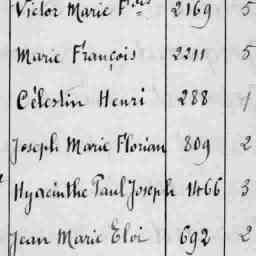 Victor Marie Fçois 2169 5
Marie François 2211 5
Célestin Henri 288 1
Joseph Marie Florian 809 2
Hyacinthe Paul Joseph 1466 3
Jean Marie Eloi 692 2